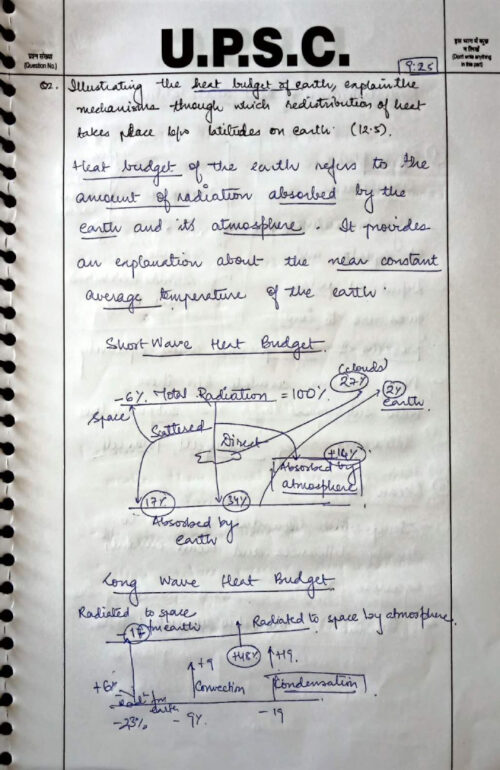 प्रश्न संख्या
(Question No.)
U.P.S.C.
इस भाग में कुछ
न लिखें
(Don't write anything
in this part)
9:25
Q2. Illustrating the heat budget of earth, explain the
mechanisms through which redistribution of heat
takes place b/w latitudes on earth. (12.5).
Heat budget of the earth refers to the
amount of radiation absorbed by the
earth and its atmosphere. It provides
an explanation about the near constant
average temperature of the earth.
Short Wave Heat Budget.
(clouds)
-6% Total Radiation = 100%. 27% 2%
Space earth
Scattered
Direct
+14%
Absorbed by
atmosphere
17% 34%
Absorbed by
earth
Long Wave Heat Budget
Radiated to space
from earth
Radiated to space by atmosphere.
-17
+48%
+9 +19.
+6%
Convection
Condensation
earth
-23% -9% -19